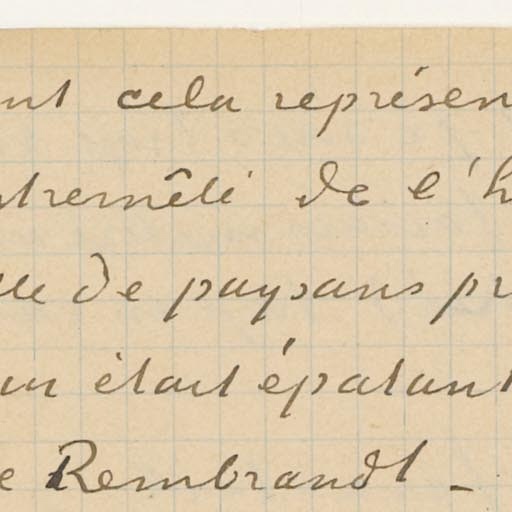 ent cela représen
ntremêlé de l'h
lle de paysans pr
un était épatant
e Rembrandt _